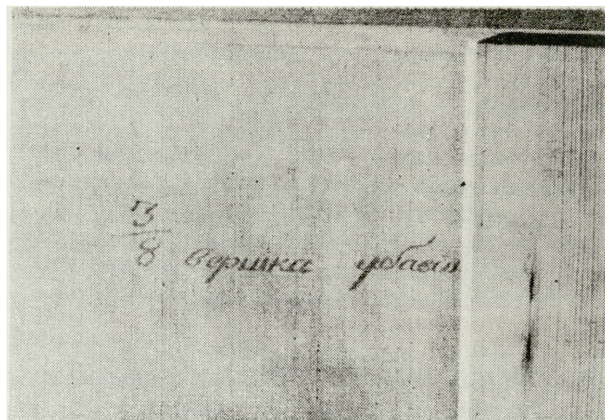 3/8 вершка убави